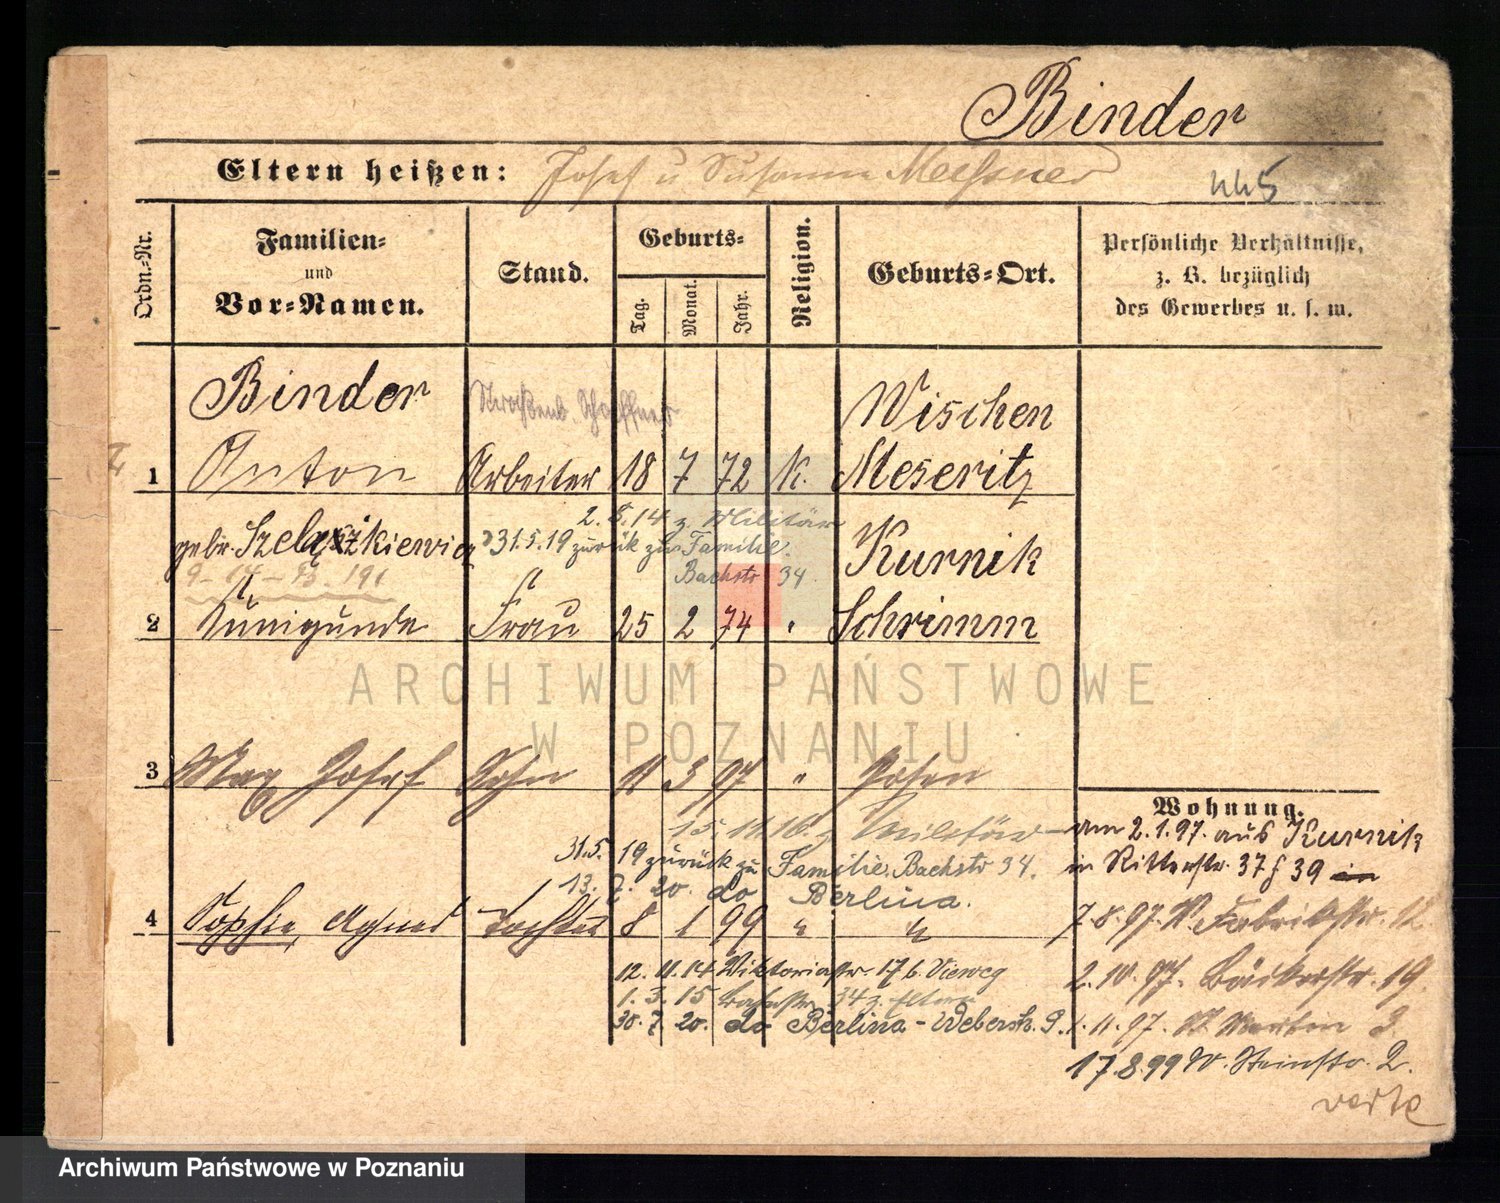 Binder
Eltern heißen: Josef u Susanna Meissner
445
Ordn.-Nr.
Familien-
und
Vor-Namen.
Stand.
Geburts-
Tag.
Monat.
Jahr.
Religion.
Geburts-Ort.
Persönliche Verhältnisse,
z. B. bezüglich
des Gewerbes u. s. w.
Binder Straßenb. Schaffner Wischen
1 Anton Arbeiter 18 7 72 K. Meseritz
2. 8. 14 z. Militär
gebr. Szelążkiewicz 31.5.19 zurück zur Familie. Kurnik
9-14-
Bachstr 34.
2 Kunigunde Frau 25 2 74 " Schrimm
ARCHIWUM PAŃSTWOWE
W POZNANIU
3 Max Josef Sohn 11 3 97 " Posen
Wohnung.
15. 11. 16. z Militär
am 2.1.97. aus Kurnik
31.5. 19 zurück zu Familie, Bachstr 34.
in Ritterstr. 37 / 39
13. 7. 20. do Berlina.
4 Sophie, Agnes Tochter 8 1 99 " "
7.8.97. W. Fabrikstr. 12
12. 11. 14 Viktoriastr. 17 b. Vieweg
2.10.97. Bäckerstr. 19.
1. 3. 15 Bachstr. 34 z. Eltern
30. 7. 20. do Berlina - Weberstr. 9.
1.11.97. 3.
17.8.99 W. Steinstr. 2.
verte
Archiwum Państwowe w Poznaniu